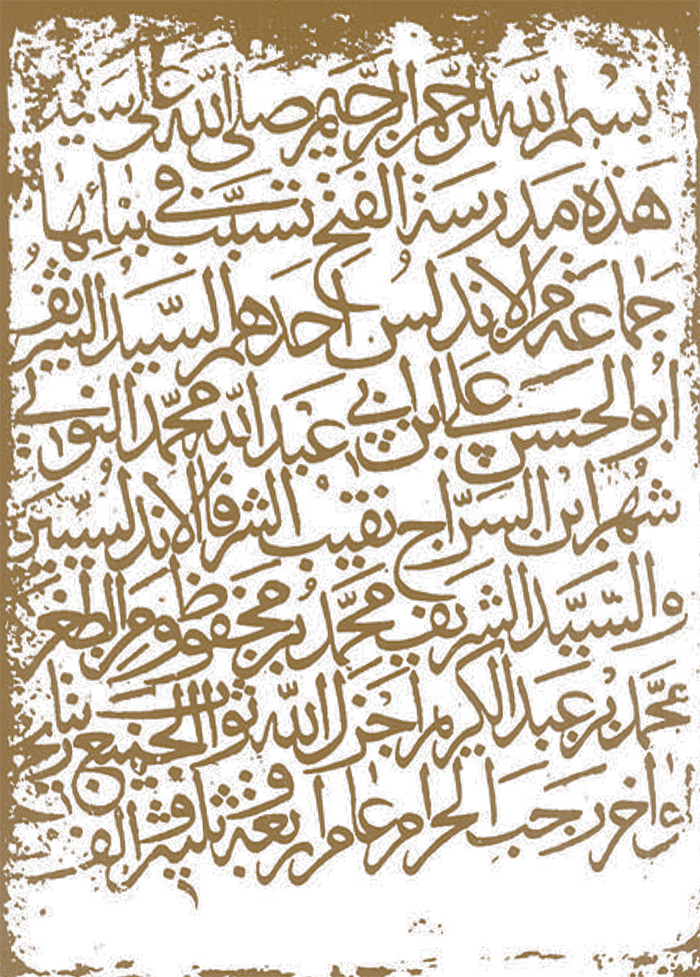 بسم الله الرحمن الرحيم صلى الله على سيد
هذه مدرسة الفتح تسبب في بنائها
جماعة من الاندلس احدهم السيد الشريف
ابو الحسن علي ابن ابي عبد الله محمد النوبي
شهر ابن السراج نقيب الشرفا الاندلسيين
والسيد الشريف محمد بن محفوظ ومن الطغر
محمد بن عبد الكريم اجزل الله ثواب الجميع بنا
واخر رجب الحرام عام اربعة وثلثين والف